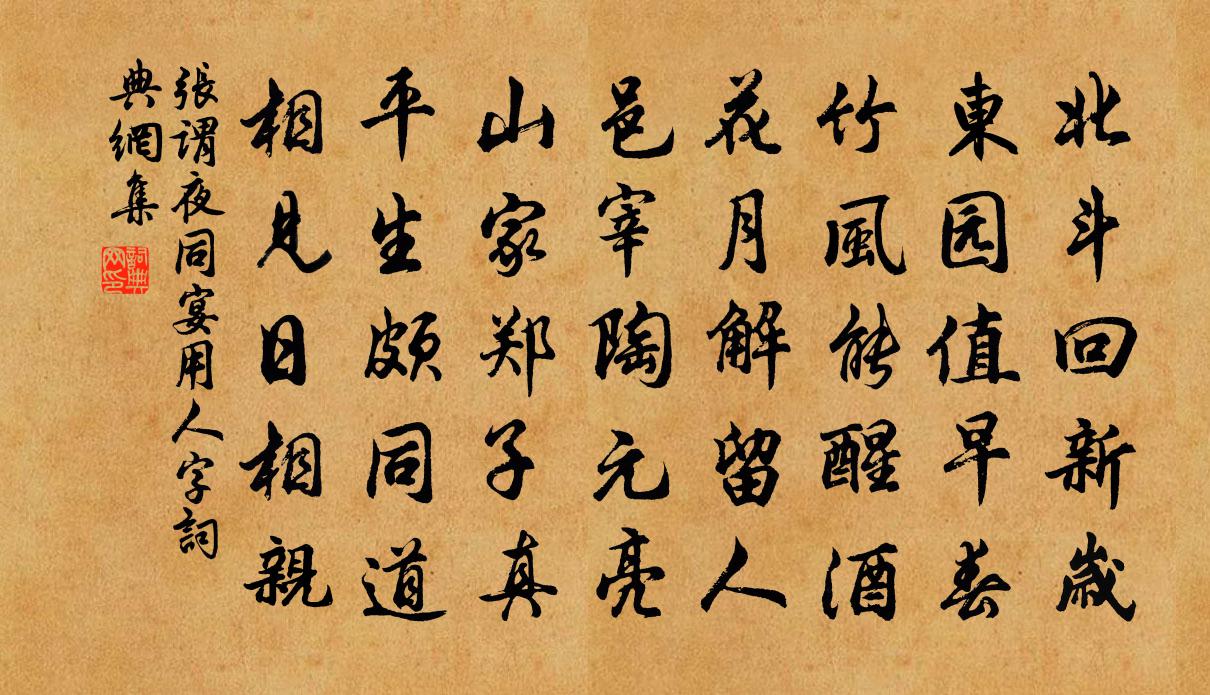 北斗回新歳
東园值早春
竹風能醒酒
花月解留人
邑宰陶元亮
山家郑子真
平生颇同道
相見日相親
張谓夜同宴用人字詞
典網集
詞典
网印